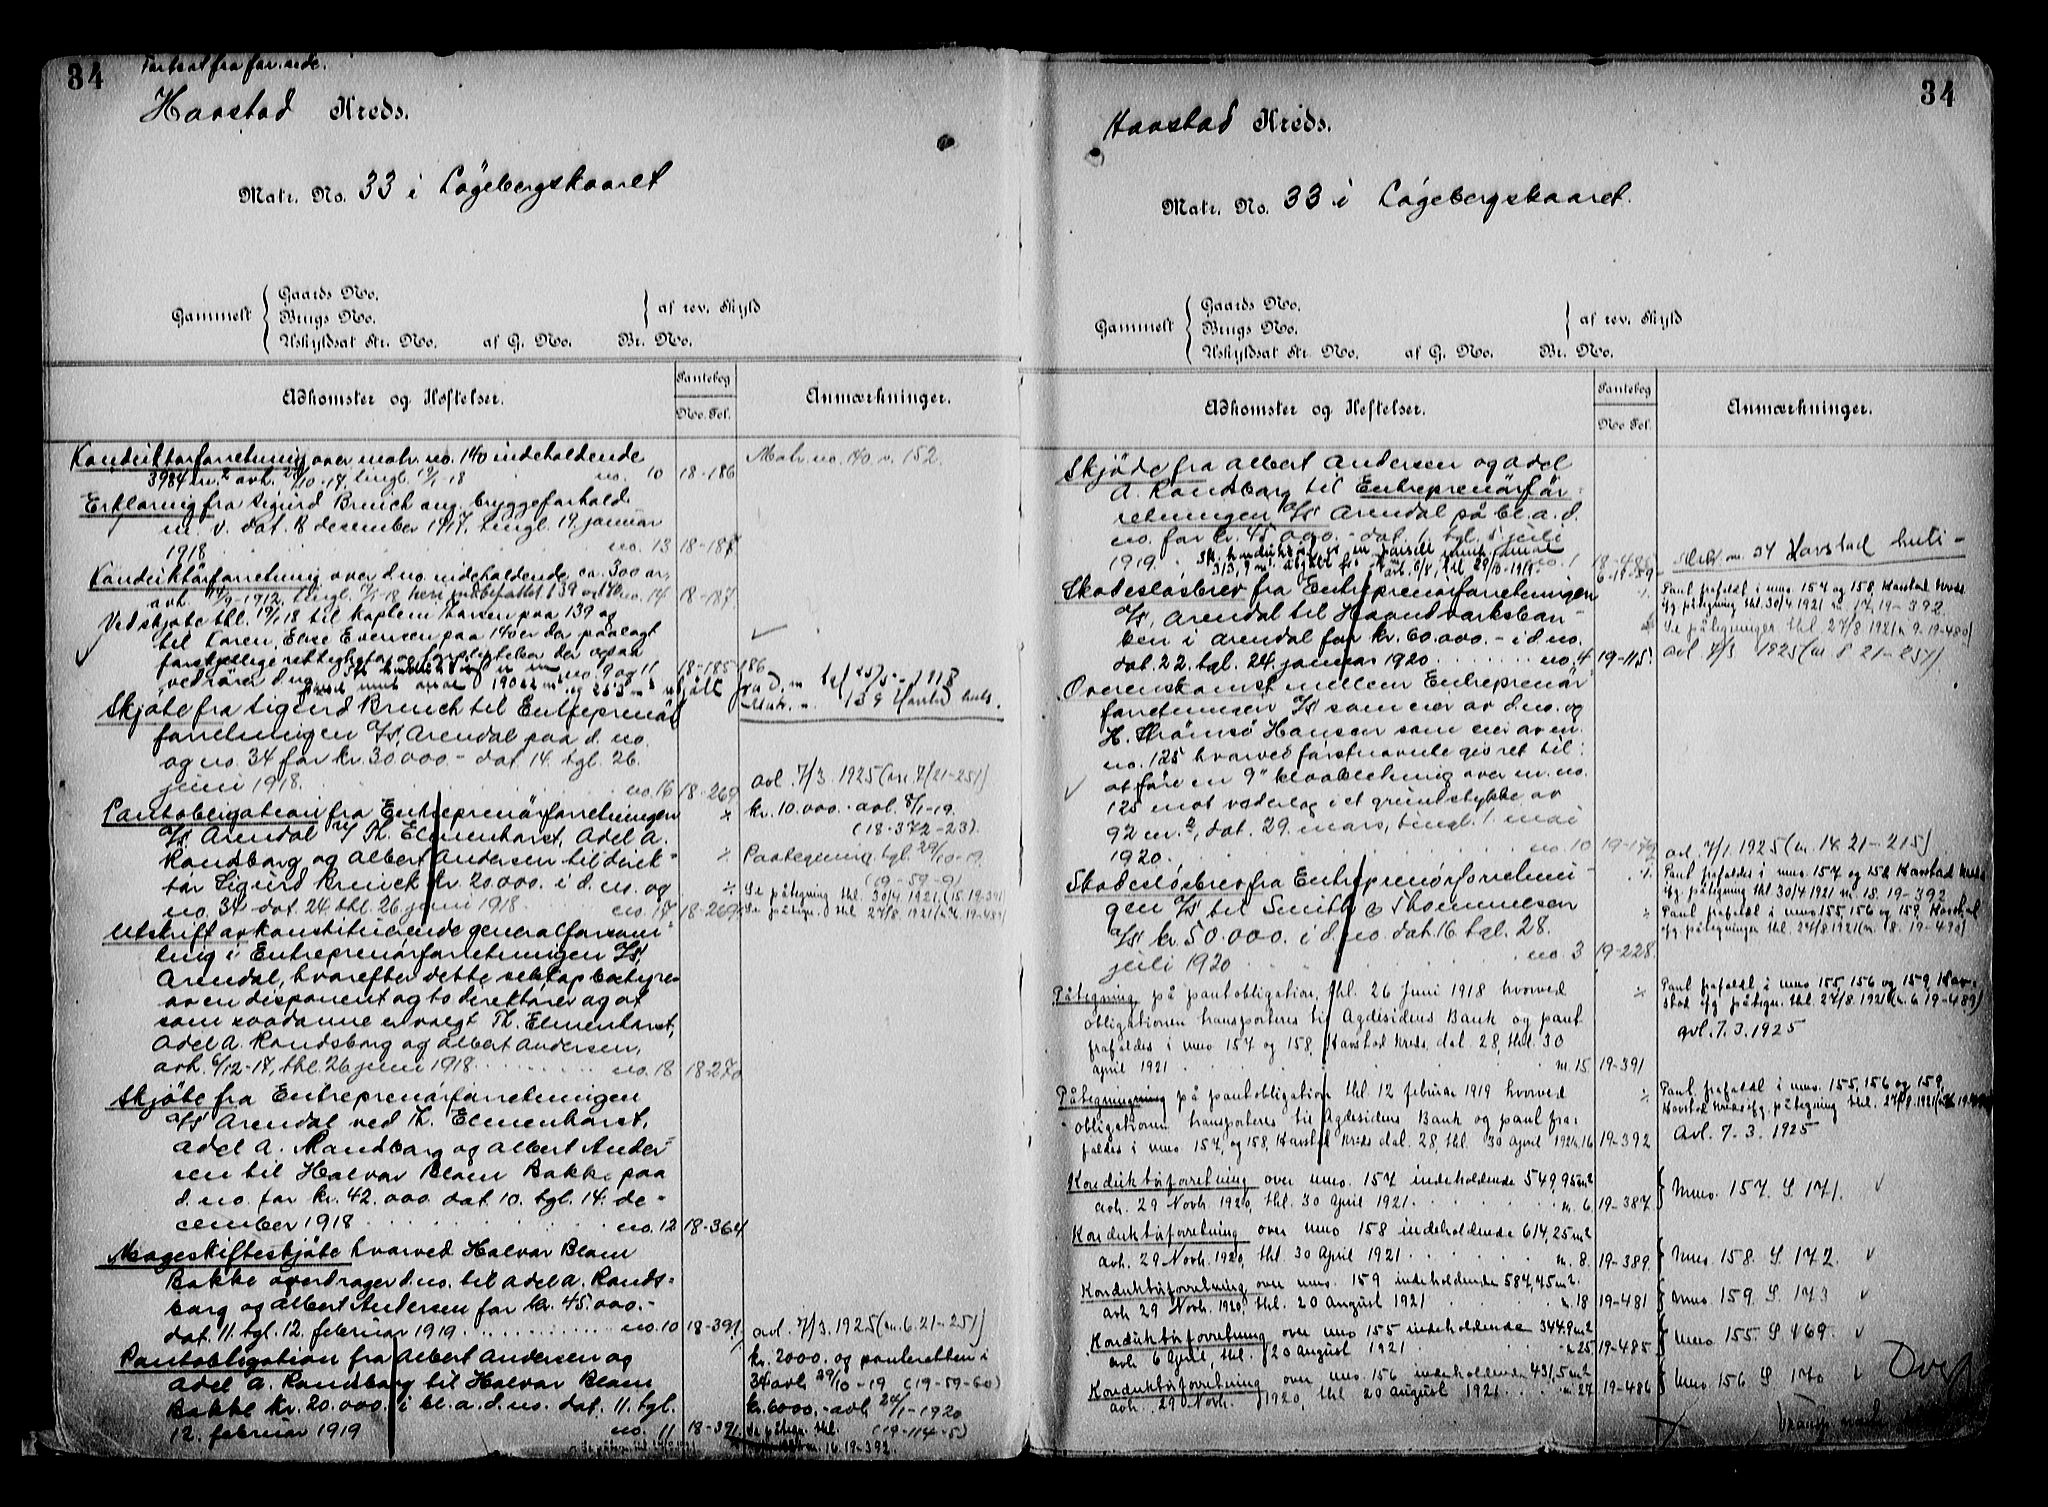 34
Fortsat fra for. side.
Havstad Kreds.
Matr. No. 33 i Løgebergskaaret
Gammelt
Gaards No.
Brugs No.
Uskyldsat Str. No. af G. No. Br. No.
af rev. Skyld
Adkomster og Heftelser.
Pantebog
No. Fol.
Anmærkninger.
Konduktørforretning over matr. no. 140 indeholdende
3984 m.² avh. /10-17, tingl. 19/1-18 no. 10 18-186
Matr. no. 140 s. 152.
Erklæring fra Sigurd Bruick ang. bryggeforhold
m. v. dat. 8 desember 1917, tingl. 19. januar
1918 no. 13 18-187
Konduktørforretning over d. no. indeholdende ca. 300 ar,
avh. /9-1912, tingl. 19/1-18 heri indbefattet 139 og 140 no. 14 18-187
Ved skjøte thl. 19/1 18 til kaptein Larsen paa 139 og
til Karen, Elise Evensen paa 140 er der paalagt
forskjellige rettigheter og forpliktelser der ogsaa
vedrører d. no. no. 9 og 11 18-185 186
Skjøte fra Sigurd Bruick til Entreprenør
forretningen A/S, Arendal paa d. no.
og no. 34 for kr. 30000.- dat. 14. tgl. 26.
juni 1918. no. 16 18-269
Pantobligation fra Entreprenørforretningen
A/S Arendal v/ Th. Elmenhorst, Adel A.
Randborg og Albert Andersen til direk-
tør Sigurd Bruick kr. 20.000. i d. no. og
no. 34 dat. 24. thl. 26. juni 1918 no. 17 18-269
avl. 7/3. 1925 (no. 7/21-251)
kr. 10.000.- avl. 8/1-19.
(18-372-23).
Paategning tgl. 29/10-19.
(19-59-9)
Se påtegning thl. 30/4 1921, (15. 19-391
Se påtegn. thl 27/8. 1921 (n 7. 19-489)
Utskrift av konstituerende generalforsam-
ling i Entreprenørforretningen A/S,
Arendal, hvorefter dette selskap bestyres
av en disponent og to direktører og at
som saadanne er valgt Th. Elmenhorst,
Adel A. Randsborg og Albert Andersen,
avh. 6/12-17, thl. 26 juni 1918 no. 18 18-270
Skjøte fra Entreprenørforretningen
A/S Arendal ved Th. Elmenhorst,
Adel A. Randborg og Albert Ander-
sen til Halvar Blom Bakke paa
d. no. for kr. 42.000. dat. 10. tgl. 14. de-
cember 1918 no. 12 18-364
Mageskifteskjøte hvorved Halvar Blom
Bakke overdrager d. no. til Adel A. Rands-
borg og Albert Andersen for kr. 45.000.-
dat. 11. tgl. 12. februar 1919 no. 10 18-391
Pantobligation fra Albert Andersen og
Adel A. Randsborg til Halvar Blom
Bakke kr. 20.000. i bl. a. d. no. dat. 11. tgl.
12. februar 1919 no. 11 18-391
avl. 7/3. 1925 (no. 6. 21-251)
kr. 2000. og panteretten i
34 avl. 29/10-19 (19-59-60)
kr. 6000.- avl. 24/1-1920
(19-114-5)
Se påtegn. thl.
16. 19-392.
34
Havstad Kreds.
Matr. No. 33 i Løgebergskaaret.
Gammelt
Gaards No.
Brugs No.
Uskyldsat Str. No. af G. No. Br. No.
af rev. Skyld
Adkomster og Heftelser.
Pantebog
No. Fol.
Anmærkninger.
Skjøde fra Albert Andersen og Adel
A. Randborg til Entreprenørfor-
retningen A/S Arendal på bl. a. d.
no. for kr. 45 000.- dat. 1. tgl. 5 juli
1919. no. 1 18-486
6-19-59
matr. no. 34 Havstad
Skadesløsbrev fra Entreprenørforretningen
A/S, Arendal til Haandverksban-
ken i Arendal for kr. 60.000.- i d. no.
dat. 22. tgl. 24. januar 1920 no. 4 19-115
Pant frafaldes i mno 157 og 158, Havstad Kreds
ifg påtegning thl. 30/4 1921 n. 17, 19-392
Se påtegninger thl. 27/8 1921 n. 9. 19-480)
avl. 7/3 1925 (n. 8. 21-251)
Overenskomst mellem Entreprenør
forretningen A/S som eier av d. no. og
H. Strømsø Hansen som eier av m.
no. 125 hvorved førstnævnte gives ret til
at føre en 9" kloakledning over m. no.
125 mot vederlag i et grundstykke av
92 m.², dat. 29. mars, tingl. 1. mai
1920 no. 10 19-179
Skadesløsbrev fra Entreprenørforretnin-
gen A/S til Smith & Thommesen
A/S kr. 50.000. i d. no. dat. 16. tgl. 28.
juli 1920 no 3 19-228.
avl. 7/1. 1925 (n. 14. 21-215)
Pant frafaldes i mno. 157 og 158 Havstad Kreds
ifg. påtegning thl. 30/4 1921 n. 18. 19-392
Pant frafaldt i mno 155, 156 og 159, Havstad
ifg påtegninger thl. 27/8. 1921 (n. 8. 19-490)
Påtegning på pantobligation, thl. 26 Juni 1918 hvorved
obligationen transporteres til Agdesidens Bank og pant
frafaldes i mno 157 og 158, Havstad Kreds, dat. 28, thl. 30
april 1921 n. 15 19-391
Pant frafaldt i mno 155, 156 og 159, Hav-
stad ifg påtegn. thl. 27/8. 1921 (n. 6 19-489)
avl. 7. 3. 1925
Påtegning på pantobligation thl. 12 februar 1919 hvorved
obligationen transporteres til Agdesidens Bank og pant fra-
faldes i mno 157, og 158, Havstad Kreds dat. 28, thl. 30 april 1921 n. 16 19-392
Pant frafaldt i mno. 155, 156 og 159,
Havstad Kreds ifg. påtegning thl. 27/8. 1921
Avl. 7-3. 1925
Konduktørforretning over mno. 157 indeholdende 549,95 m²
avh. 29 Novb. 1920, thl. 30 April 1921 n. 6 19-387
Mno. 157. S. 171.
Konduktørforretning over mno 158 indeholdende 614,25 m²
avh. 29 Novb. 1920, thl. 30 April 1921 n. 8. 19-389.
Mno. 158. S. 172.
Konduktørforretning over mno. 159 indeholdende 584,45 m².
avh 29 Novb. 1920, thl. 20 August 1921 n. 18 19-481
Mno. 159. S. 173
Konduktørforretning over mno 155 indeholdende 344.9 m²
avh 6 April, thl. 20 August 1921 n. 25 19-485
Mno. 155. S 169.
Konduktørforretning over mno. 156 indeholdende 431,5 m²
avh. 29 Novb. 1920, thl 20 August 1921 n. 27. 19-486
Mno 156 S 170